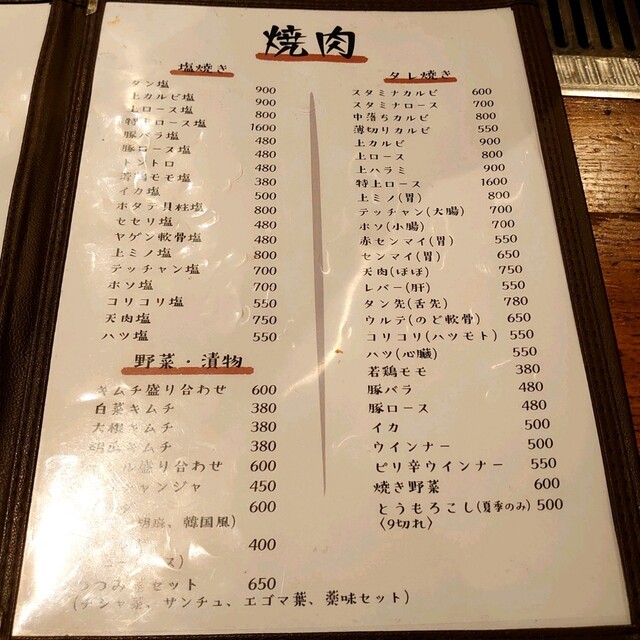 焼肉
塩焼き
タン塩 900
上カルビ塩 900
上ロース塩 800
特上ロース塩 1600
豚バラ塩 480
豚ロース塩 480
トントロ 480
若鶏モモ塩 380
イカ塩 500
ホタテ貝柱塩 800
セセリ塩 480
ヤゲン軟骨塩 480
上ミノ塩 800
テッチャン塩 700
ホソ塩 700
コリコリ塩 550
天肉塩 750
ハツ塩 550
野菜・漬物
キムチ盛り合わせ 600
白菜キムチ 380
大根キムチ 380
胡瓜キムチ 380
ル盛り合わせ 600
チャンジャ 450
600
胡麻、韓国風)
400
ス)
つつみ セット 650
(チシャ葉、サンチュ、エゴマ葉、薬味セット)
タレ焼き
スタミナカルビ 600
スタミナロース 700
中落ちカルビ 800
薄切りカルビ 550
上カルビ 900
上ロース 800
上ハラミ 900
特上ロース 1600
上ミノ(胃) 800
テッチャン(大腸) 700
ホソ(小腸) 700
赤センマイ(胃) 550
センマイ(胃) 650
天肉(ほほ) 750
レバー(肝) 550
タン先(舌先) 780
ウルテ(のど軟骨) 650
コリコリ(ハツモト) 550
ハツ(心臓) 550
若鶏モモ 380
豚バラ 480
豚ロース 480
イカ 500
ウインナー 500
ピリ辛ウインナー 550
焼き野菜 600
とうもろこし(夏季のみ) 500
〈9切れ〉